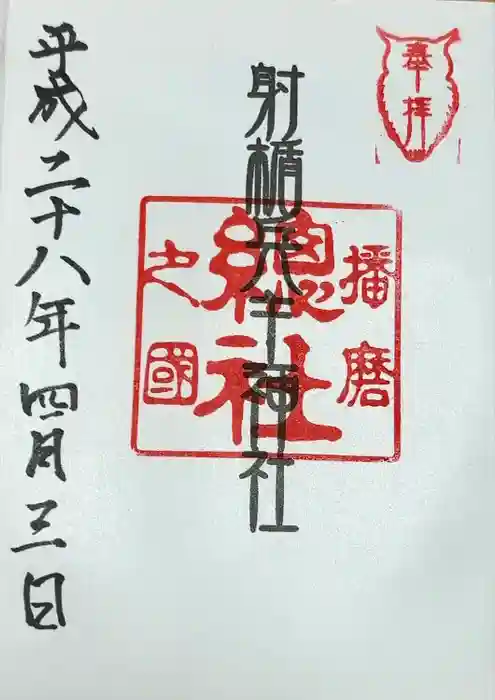 奉拝
射楯兵主神社
播磨
之國
總社
平成二十八年四月三日